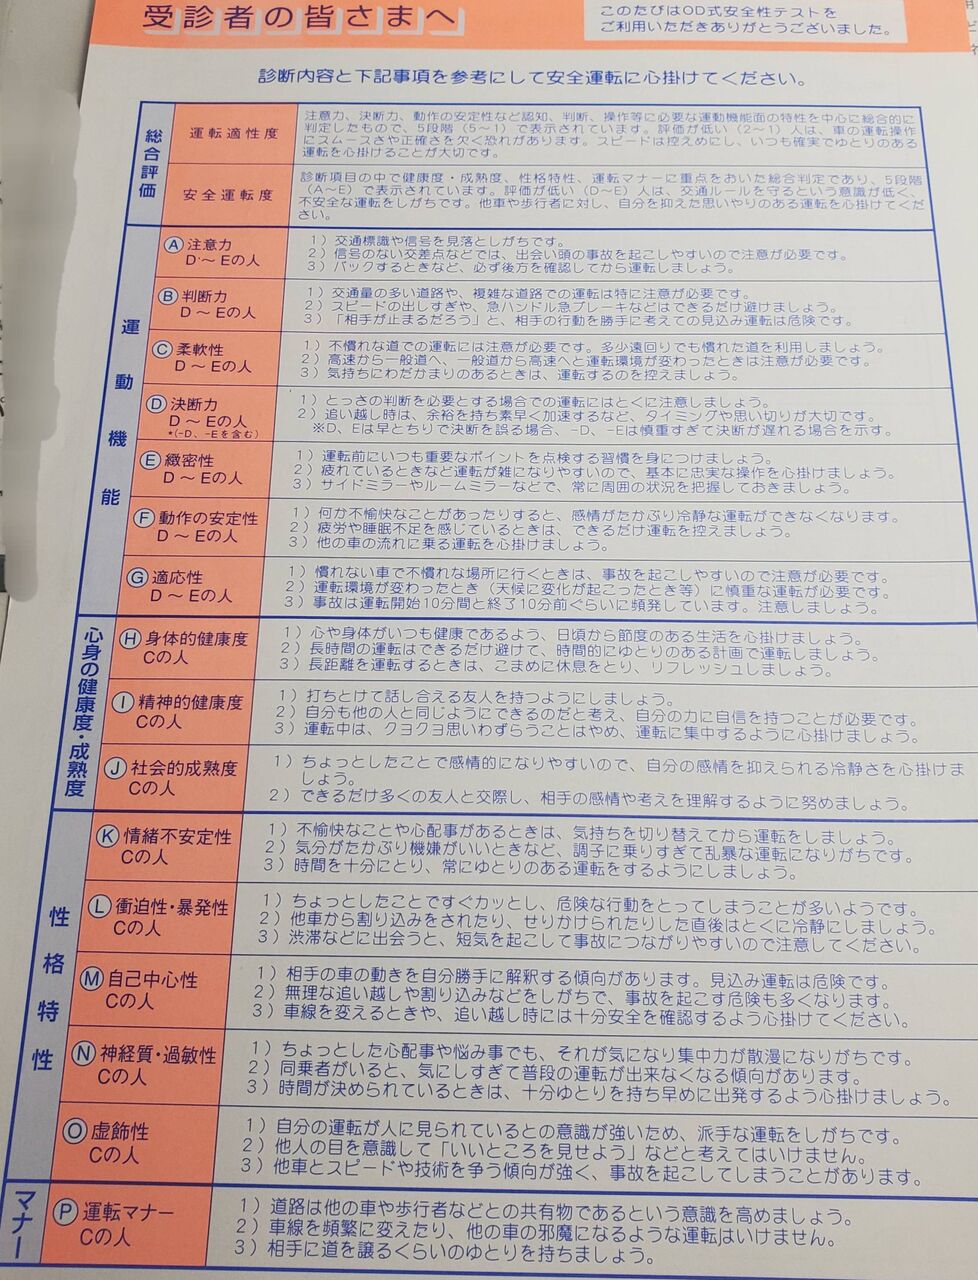 受診者の皆さまへ
このたびはOD式安全性テストを
ご利用いただきありがとうございました。
診断内容と下記事項を参考にして安全運転に心掛けてください。
総合評価
運転適性度
注意力、決断力、動作の安定性など認知、判断、操作等に必要な運動機能面の特性を中心に総合的に
判定したもので、5段階（5～1）で表示されています。評価が低い（2～1）人は、車の運転操作
にスムースさや正確さを欠く恐れがあります。スピードは控えめにし、いつも確実でゆとりのある
運転を心掛けることが大切です。
安全運転度
診断項目の中で健康度・成熟度、性格特性、運転マナーに重点をおいた総合判定であり、5段階
（A～E）で表示されています。評価が低い（D～E）人は、交通ルールを守るという意識が低く、
不安全な運転をしがちです。他車や歩行者に対し、自分を抑えた思いやりのある運転を心掛けてくだ
さい。
運動機能
Ⓐ 注意力
D～Eの人
1）交通標識や信号を見落としがちです。
2）信号のない交差点などでは、出会い頭の事故を起こしやすいので注意が必要です。
3）バックするときなど、必ず後方を確認してから運転しましょう。
Ⓑ 判断力
D～Eの人
1）交通量の多い道路や、複雑な道路での運転は特に注意が必要です。
2）スピードの出しすぎや、急ハンドル急ブレーキなどはできるだけ避けましょう。
3）「相手が止まるだろう」と、相手の行動を勝手に考えての見込み運転は危険です。
Ⓒ 柔軟性
D～Eの人
1）不慣れな道での運転には注意が必要です。多少遠回りでも慣れた道を利用しましょう。
2）高速から一般道へ、一般道から高速へと運転環境が変わったときは注意が必要です。
3）気持ちにわだかまりのあるときは、運転するのを控えましょう。
Ⓓ 決断力
D～Eの人
*(-D、-Eを含む)
1）とっさの判断を必要とする場合での運転にはとくに注意しましょう。
2）追い越し時は、余裕を持ち素早く加速するなど、タイミングや思い切りが大切です。
※D、Eは早とちりで決断を誤る場合、-D、-Eは慎重すぎて決断が遅れる場合を示す。
Ⓔ 緻密性
D～Eの人
1）運転前にいつも重要なポイントを点検する習慣を身につけましょう。
2）疲れているときなど運転が雑になりやすいので、基本に忠実な操作を心掛けましょう。
3）サイドミラーやルームミラーなどで、常に周囲の状況を把握しておきましょう。
Ⓕ 動作の安定性
D～Eの人
1）何か不愉快なことがあったりすると、感情がたかぶり冷静な運転ができなくなります。
2）疲労や睡眠不足を感じているときは、できるだけ運転を控えましょう。
3）他の車の流れに乗る運転を心掛けましょう。
Ⓖ 適応性
D～Eの人
1）慣れない車で不慣れな場所に行くときは、事故を起こしやすいので注意が必要です。
2）運転環境が変わったとき（天候に変化が起こったとき等）に慎重な運転が必要です。
3）事故は運転開始10分間と終了10分前ぐらいに頻発しています。注意しましょう。
心身の健康度・成熟度
Ⓗ 身体的健康度
Cの人
1）心や身体がいつも健康であるよう、日頃から節度のある生活を心掛けましょう。
2）長時間の運転はできるだけ避けて、時間的にゆとりのある計画で運転しましょう。
3）長距離を運転するときは、こまめに休息をとり、リフレッシュしましょう。
Ⓘ 精神的健康度
Cの人
1）打ちとけて話し合える友人を持つようにしましょう。
2）自分も他の人と同じようにできるのだと考え、自分の力に自信を持つことが必要です。
3）運転中は、クヨクヨ思いわずらうことはやめ、運転に集中するように心掛けましょう。
Ⓙ 社会的成熟度
Cの人
1）ちょっとしたことで感情的になりやすいので、自分の感情を抑えられる冷静さを心掛けま
しょう。
2）できるだけ多くの友人と交際し、相手の感情や考えを理解するように努めましょう。
性格特性
Ⓚ 情緒不安定性
Cの人
1）不愉快なことや心配事があるときは、気持ちを切り替えてから運転をしましょう。
2）気分がたかぶり機嫌がいいときなど、調子に乗りすぎて乱暴な運転になりがちです。
3）時間を十分にとり、常にゆとりのある運転をするようにしましょう。
Ⓛ 衝迫性・暴発性
Cの人
1）ちょっとしたことですぐカッとし、危険な行動をとってしまうことが多いようです。
2）他車から割り込みをされたり、せりかけられたりした直後はとくに冷静にしましょう。
3）渋滞などに出会うと、短気を起こして事故につながりやすいので注意してください。
Ⓜ 自己中心性
Cの人
1）相手の車の動きを自分勝手に解釈する傾向があります。見込み運転は危険です。
2）無理な追い越しや割り込みなどをしがちで、事故を起こす危険も多くなります。
3）車線を変えるときや、追い越し時には十分安全を確認するよう心掛けてください。
Ⓝ 神経質・過敏性
Cの人
1）ちょっとした心配事や悩み事でも、それが気になり集中力が散漫になりがちです。
2）同乗者がいると、気にしすぎて普段の運転が出来なくなる傾向があります。
3）時間が決められているときは、十分ゆとりを持ち早めに出発するよう心掛けましょう。
Ⓞ 虚飾性
Cの人
1）自分の運転が人に見られているとの意識が強いため、派手な運転をしがちです。
2）他人の目を意識して「いいところを見せよう」などと考えてはいけません。
3）他車とスピードや技術を争う傾向が強く、事故を起こしてしまうことがあります。
マナー
Ⓟ 運転マナー
Cの人
1）道路は他の車や歩行者などとの共有物であるという意識を高めましょう。
2）車線を頻繁に変えたり、他の車の邪魔になるような運転はいけません。
3）相手に道を譲るくらいのゆとりを持ちましょう。